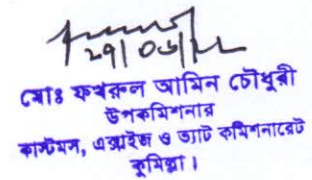 29/05/22
মোঃ ফখরুল আমিন চৌধুরী
উপকমিশনার
কাস্টমস, এক্সাইজ ও ভ্যাট কমিশনারেট
কুমিল্লা।